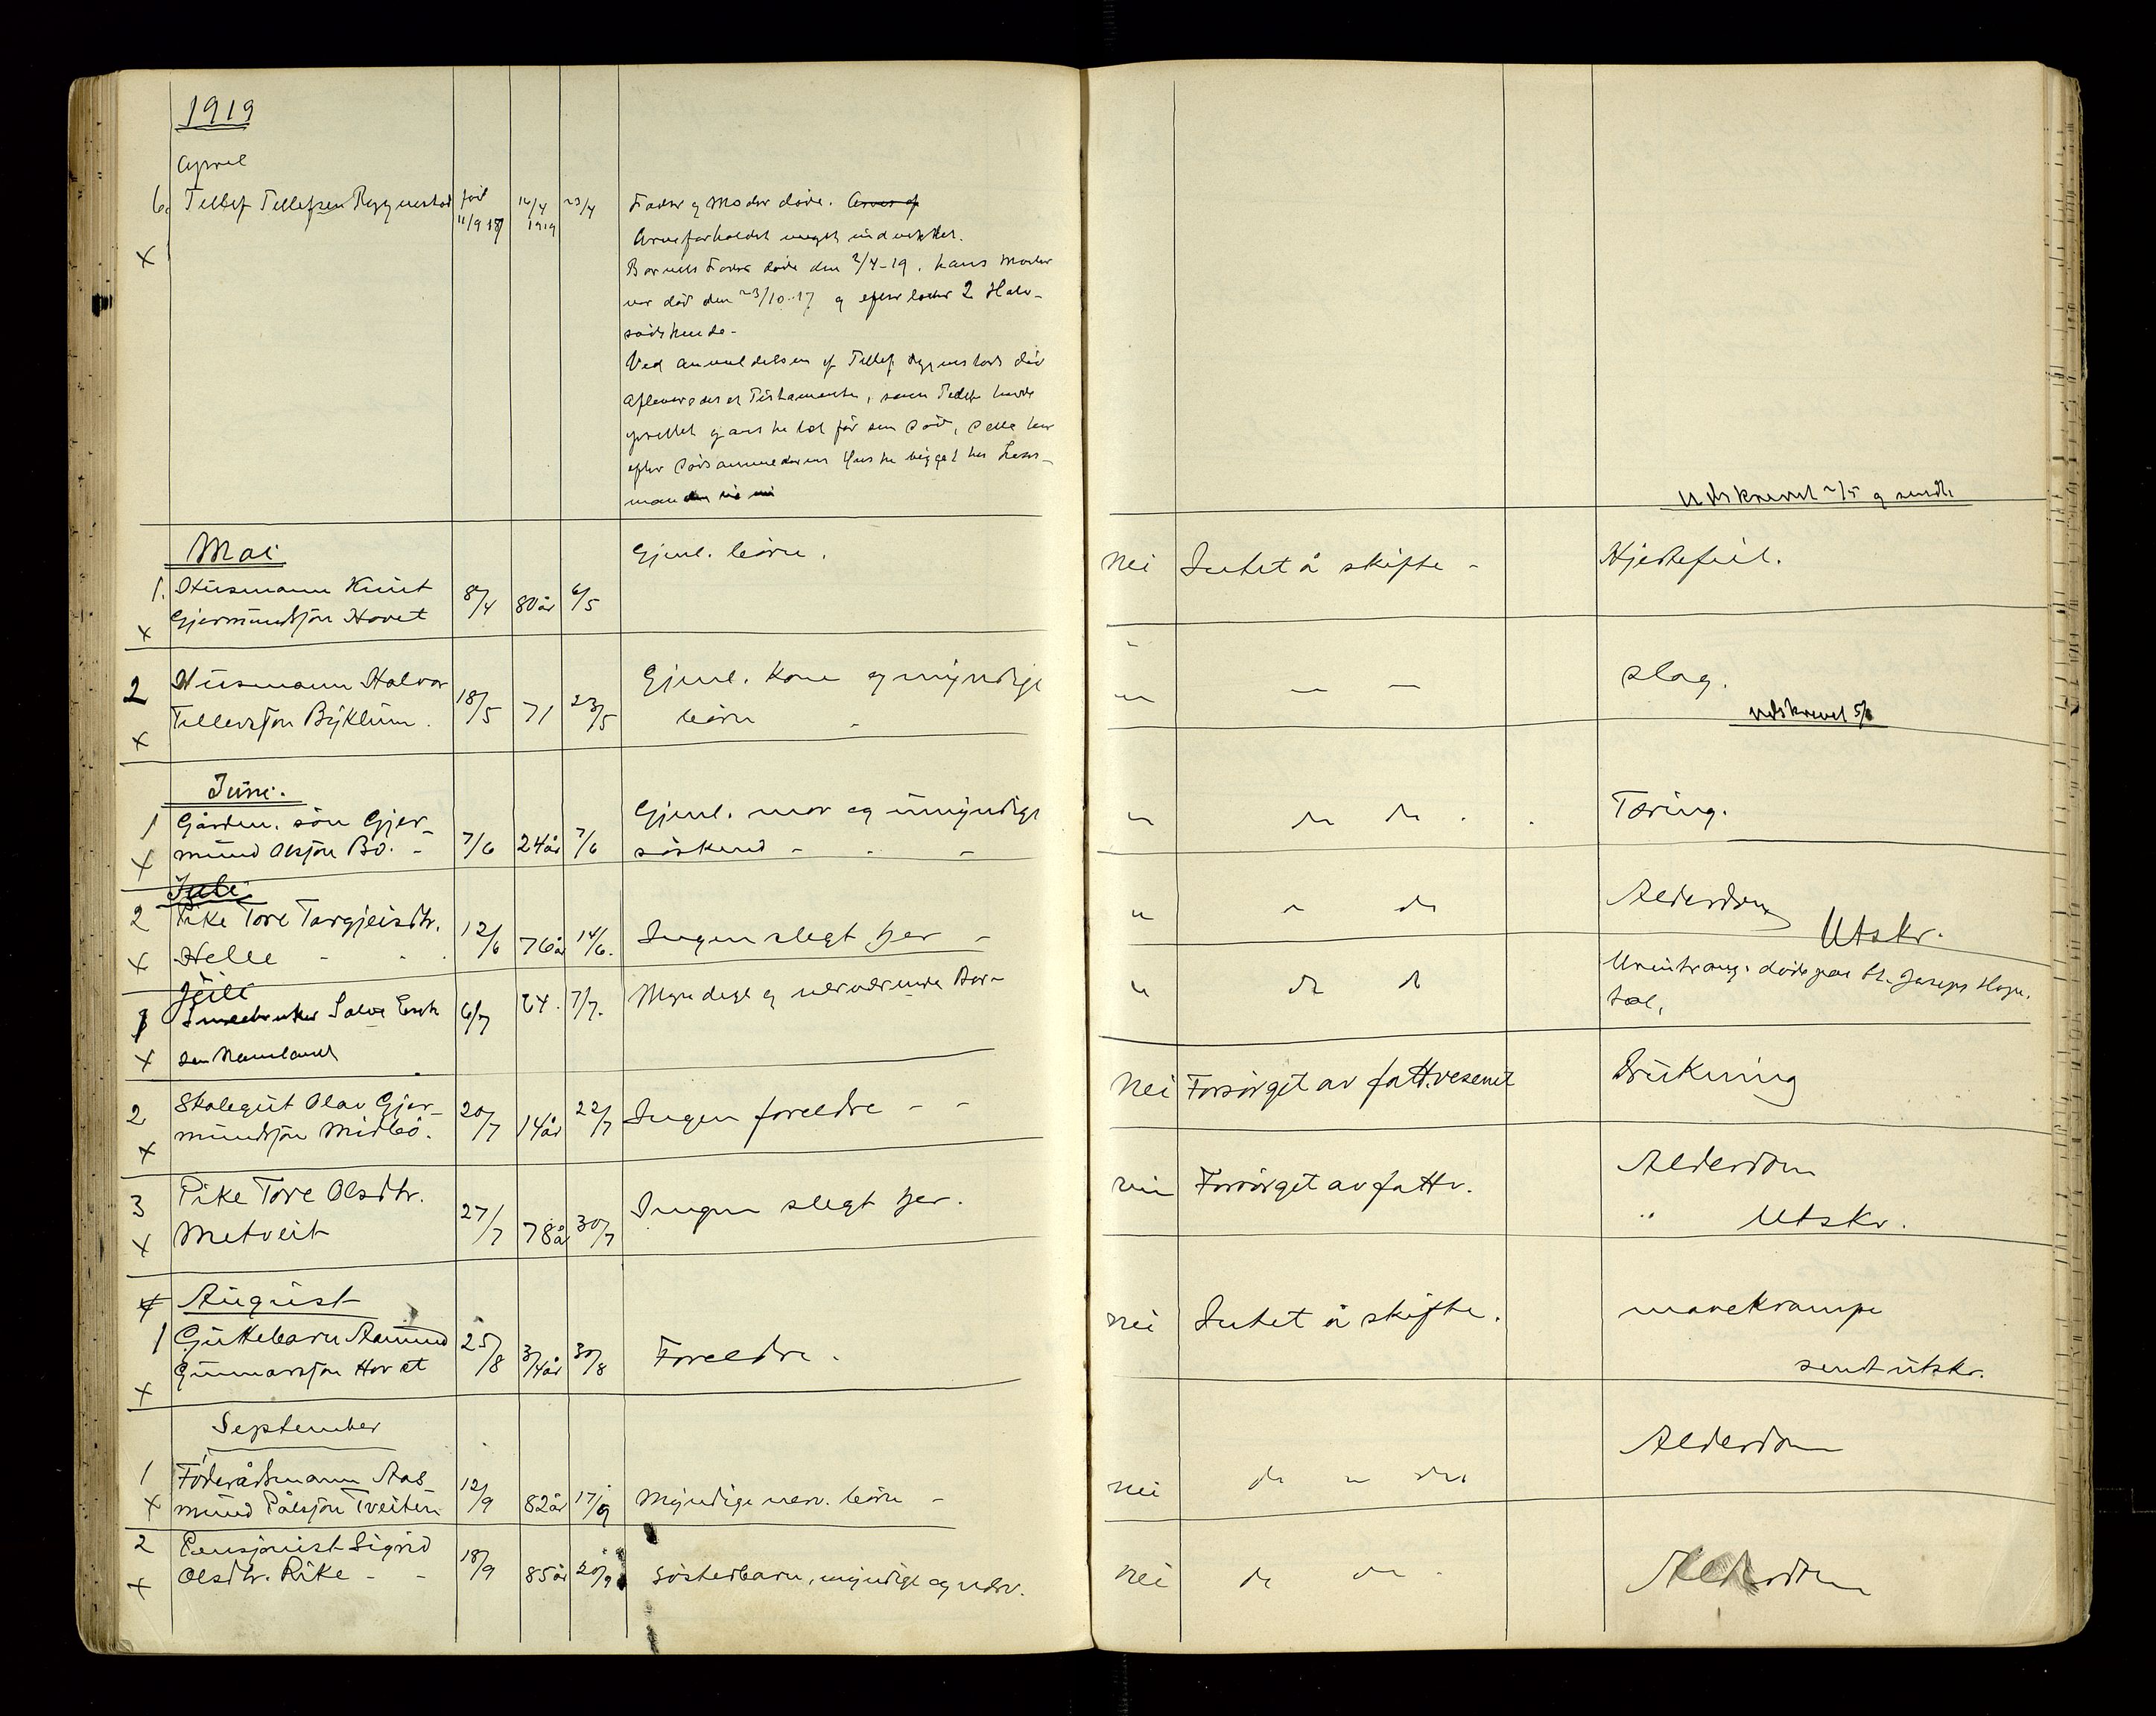 1919
April
6. Tellef Tellefsen Rygnestad
før 11/9 18
14/4 1919
23/4
Fader og Moder døde.
Arveforholdet meget indviklet.
Barnets Fader døde den 2/4-19. hans Moder
var død den 23/10-17 og efterlader 2 Halv-
södskende.
Ved anmeldelsen af Tellef Rygnestads død
afleveredes et Testamente, som Tellef havde
oprettet før sin Død,
efter
man
Udskrevet 2/5 og sendt.
Mai
1. Husmann Knut
Gjermundsson Hovet
8/4 80 år 6/5
Gjenl. børn.
Nei Intet å skifte - Hjertefeil.
x
2 Husmann Halvor
Tellevsson Bÿklum.
18/5 71 23/5
Gjenl. kone og myndige
børn
" — — Slag.
Udskrevet 5/6
x
Juni.
1 Gårdm. søn Gjer-
mund Olsson Bø. -
7/6 24 år 7/6
Gjenl. mor og umyndige
søskend -
" do do . Tæring.
x
Juli
2 Pike Tore Targjeisdtr.
Helle
12/6 76 år 14/6.
Ingen slegt her -
" " do Alderdom
Utskr.
x
Juli
1 Salve
sen Namland
6/7 64. 7/7.
Myndige og nærværende Bar-
" do do døde paa St. Josephs Hospi-
tal.
x
2 Skolegut Olav Gjer-
mundsson Midbø.
20/7 14 år 22/7
Ingen foreldre - -
Nei Forsørget av fatt.vesenet Drukning
x
3 Pike Tore Olsdtr.
Metveit
27/7 78 år 30/7
Ingen slegt her.
nei Forsørget av fattv. Alderdom
" Utskr.
x
August
1 Guttebarn Aamund
Gunnarsson Hovet
25/8 3/4 år 30/8
Foreldre.
nei Intet å skifte. mavekrampe
sendt utskr.
x
September
1 Föderådsmann Aas-
mund Pålsson Tveiten
12/9 82 år 17/9
Myndige nerv. børn -
nei do " do Alderdom
x
2 Pensjonist Sigrid
Olsdtr. Rike - -
18/9 85 år 20/9
Søsterbarn, myndige og nærv.
nei do do Alderdom
x